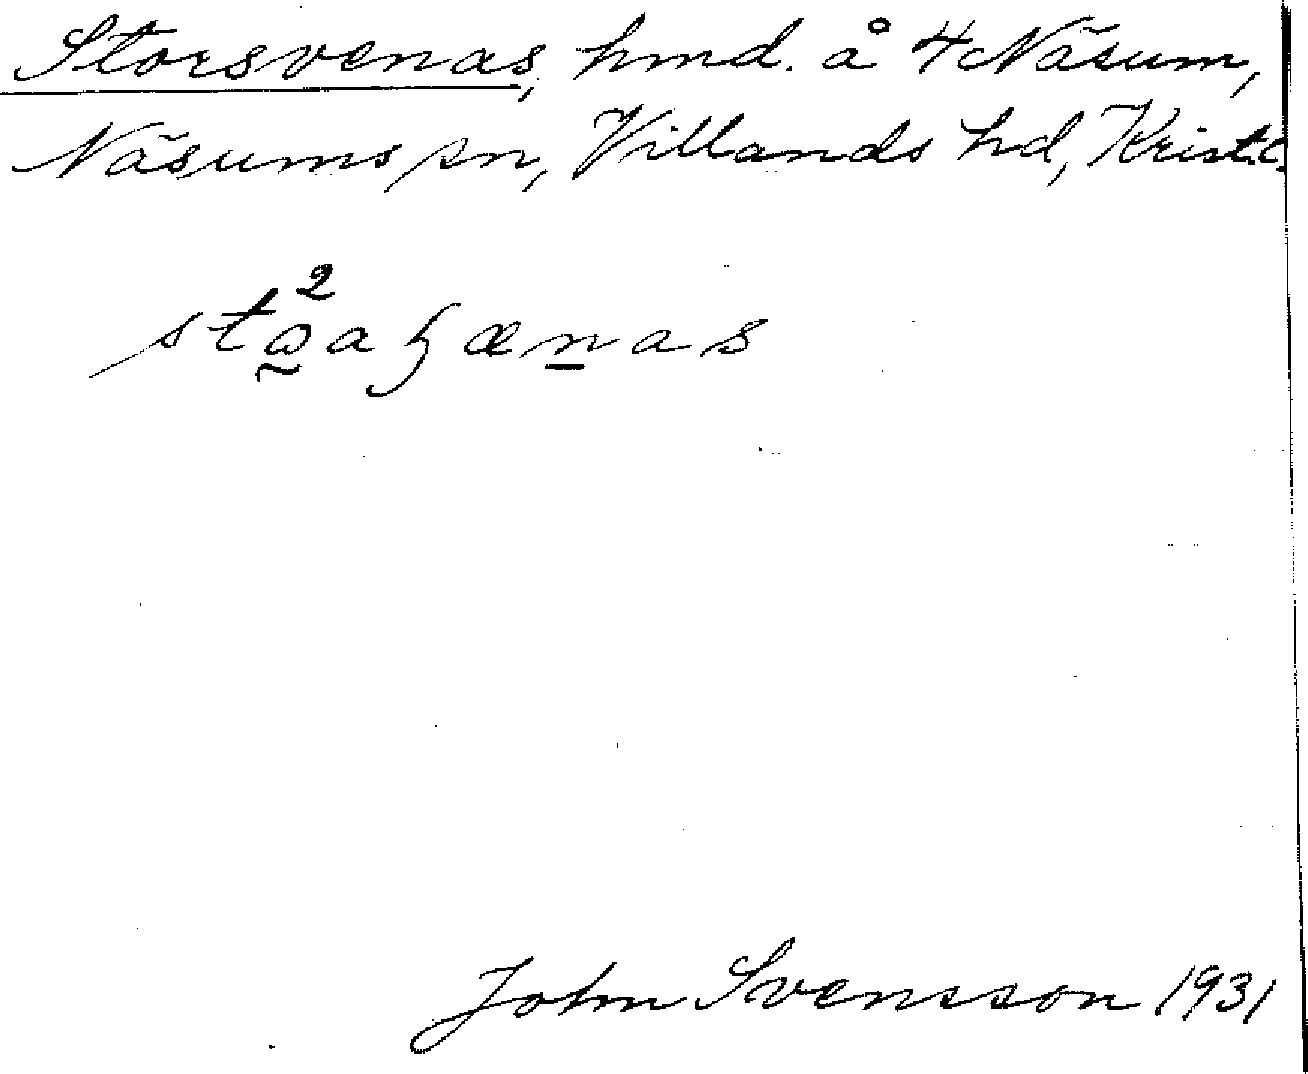 Storsvenas, hmd. å 4 Näsum,
Näsums sn, Villands hd, Krist.
John Svensson 1931